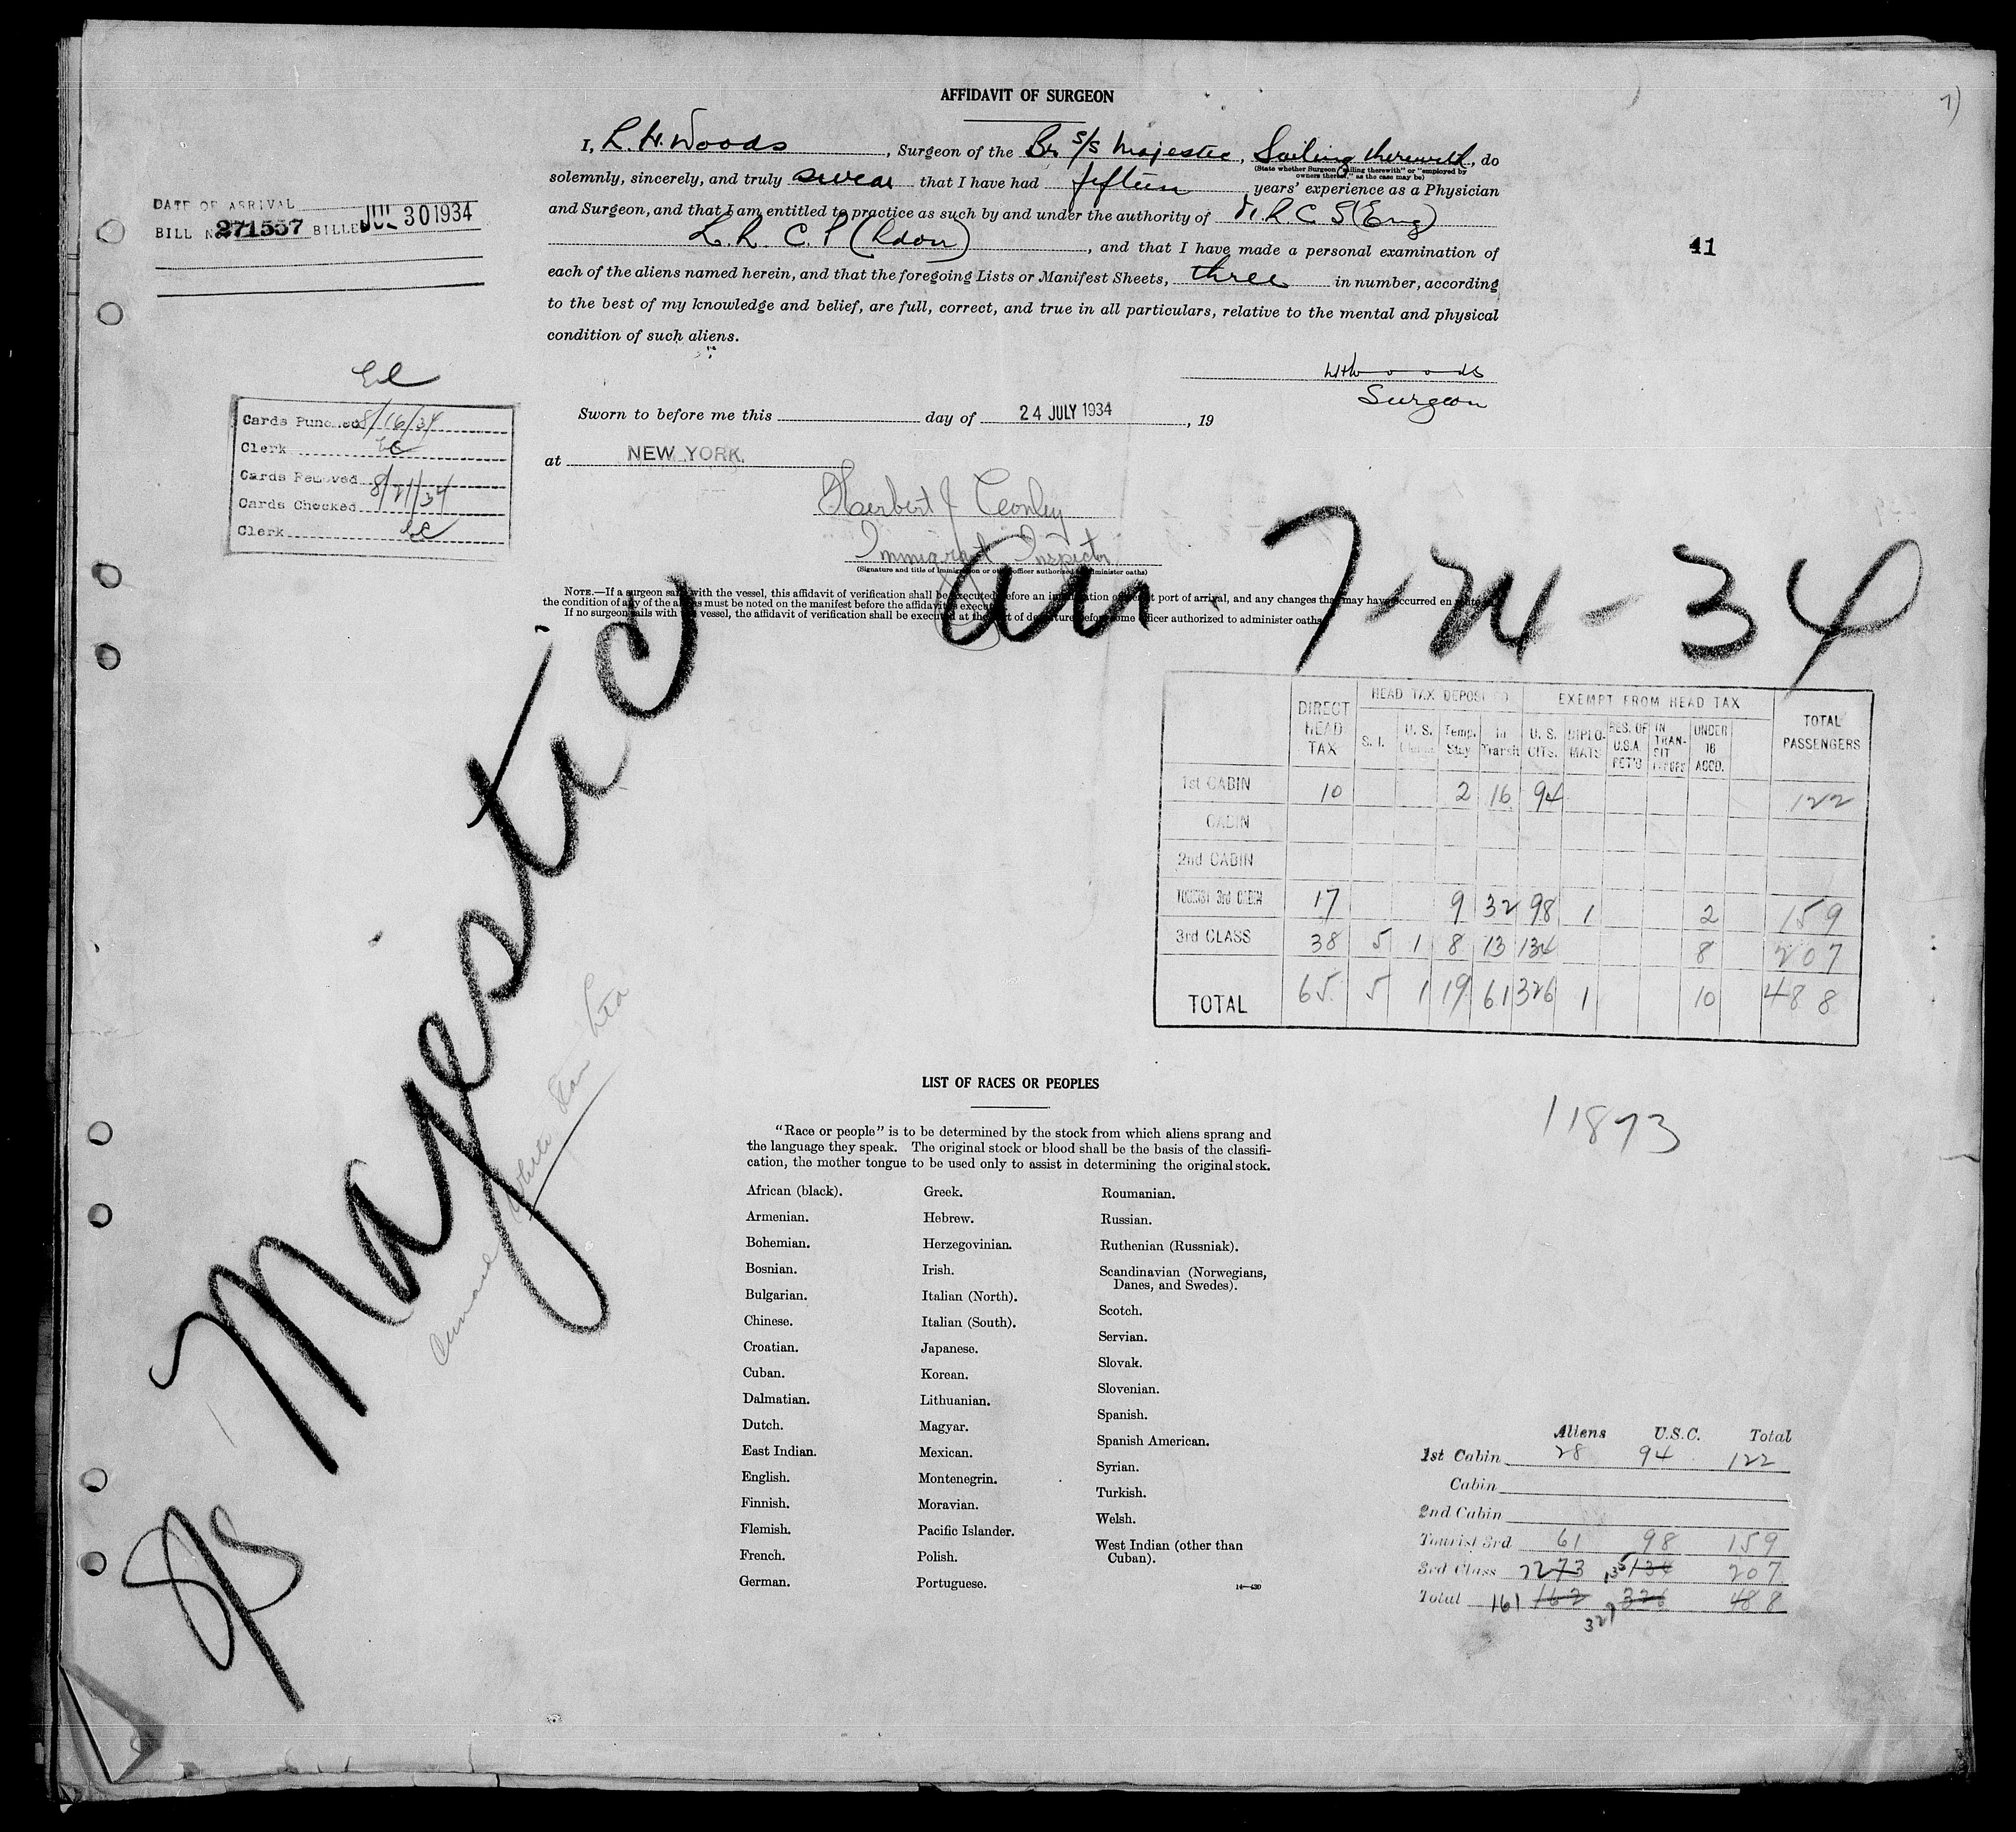 7)
AFFIDAVIT OF SURGEON
I, L. H. Woods, Surgeon of the Br s/s Majestic, Sailing therewith, do
(State whether Surgeon "sailing therewith" or "employed by
owners thereof," as the case may be)
solemnly, sincerely, and truly swear that I have had fifteen years' experience as a Physician
and Surgeon, and that I am entitled to practice as such by and under the authority of M.R.C.S (Eng)
L. R. C. P (Ldon), and that I have made a personal examination of
each of the aliens named herein, and that the foregoing Lists or Manifest Sheets, three in number, according
to the best of my knowledge and belief, are full, correct, and true in all particulars, relative to the mental and physical
condition of such aliens.
Surgeon
Sworn to before me this day of 24 JULY 1934, 19
at NEW YORK.
Herbert J Conley
Immigrant Inspector
(Signature and title of immigration or other officer authorized to administer oaths)
NOTE.—If a surgeon sails with the vessel, this affidavit of verification shall be executed before an immigration officer at port of arrival, and any changes that may have occurred en route in
the condition of any of the aliens must be noted on the manifest before the affidavit is executed.
If no surgeon sails with the vessel, the affidavit of verification shall be executed at the port of departure before some officer authorized to administer oaths.
DATE OF ARRIVAL
BILL No 271557 BILLED JUL 30 1934
41
Cards Punched 8/16/34
Clerk EC
Cards Removed
Cards Checked 8/21/34
Clerk EC
Majestic arr. 7-24-34
Cunard White Star Ltd
DIRECT HEAD TAX
HEAD TAX DEPOSITED
EXEMPT FROM HEAD TAX
TOTAL PASSENGERS
S. I. U. S. Temp. Stay In Transit U. S. CITS. DIPLO-MATS RES. OF U.S.A. RET'G IN TRAN-SIT UNDER 16 ACCD.
1st CABIN 10 2 16 94 122
CABIN
2nd CABIN
TOURIST 3rd CABIN 17 9 32 98 1 2 159
3rd CLASS 38 5 1 8 13 134 8 207
TOTAL 65 5 1 19 61 326 1 10 488
11873
LIST OF RACES OR PEOPLES
"Race or people" is to be determined by the stock from which aliens sprang and
the language they speak. The original stock or blood shall be the basis of the classifi-
cation, the mother tongue to be used only to assist in determining the original stock.
African (black).
Armenian.
Bohemian.
Bosnian.
Bulgarian.
Chinese.
Croatian.
Cuban.
Dalmatian.
Dutch.
East Indian.
English.
Finnish.
Flemish.
French.
German.
Greek.
Hebrew.
Herzegovinian.
Irish.
Italian (North).
Italian (South).
Japanese.
Korean.
Lithuanian.
Magyar.
Mexican.
Montenegrin.
Moravian.
Pacific Islander.
Polish.
Portuguese.
Roumanian.
Russian.
Ruthenian (Russniak).
Scandinavian (Norwegians,
Danes, and Swedes).
Scotch.
Servian.
Slovak.
Slovenian.
Spanish.
Spanish American.
Syrian.
Turkish.
Welsh.
West Indian (other than
Cuban).
14—430
Aliens U.S.C. Total
1st Cabin 28 94 122
Cabin
2nd Cabin
Tourist 3rd 61 98 159
3rd Class 72 73 135 134 207
Total 161 162 327 326 488